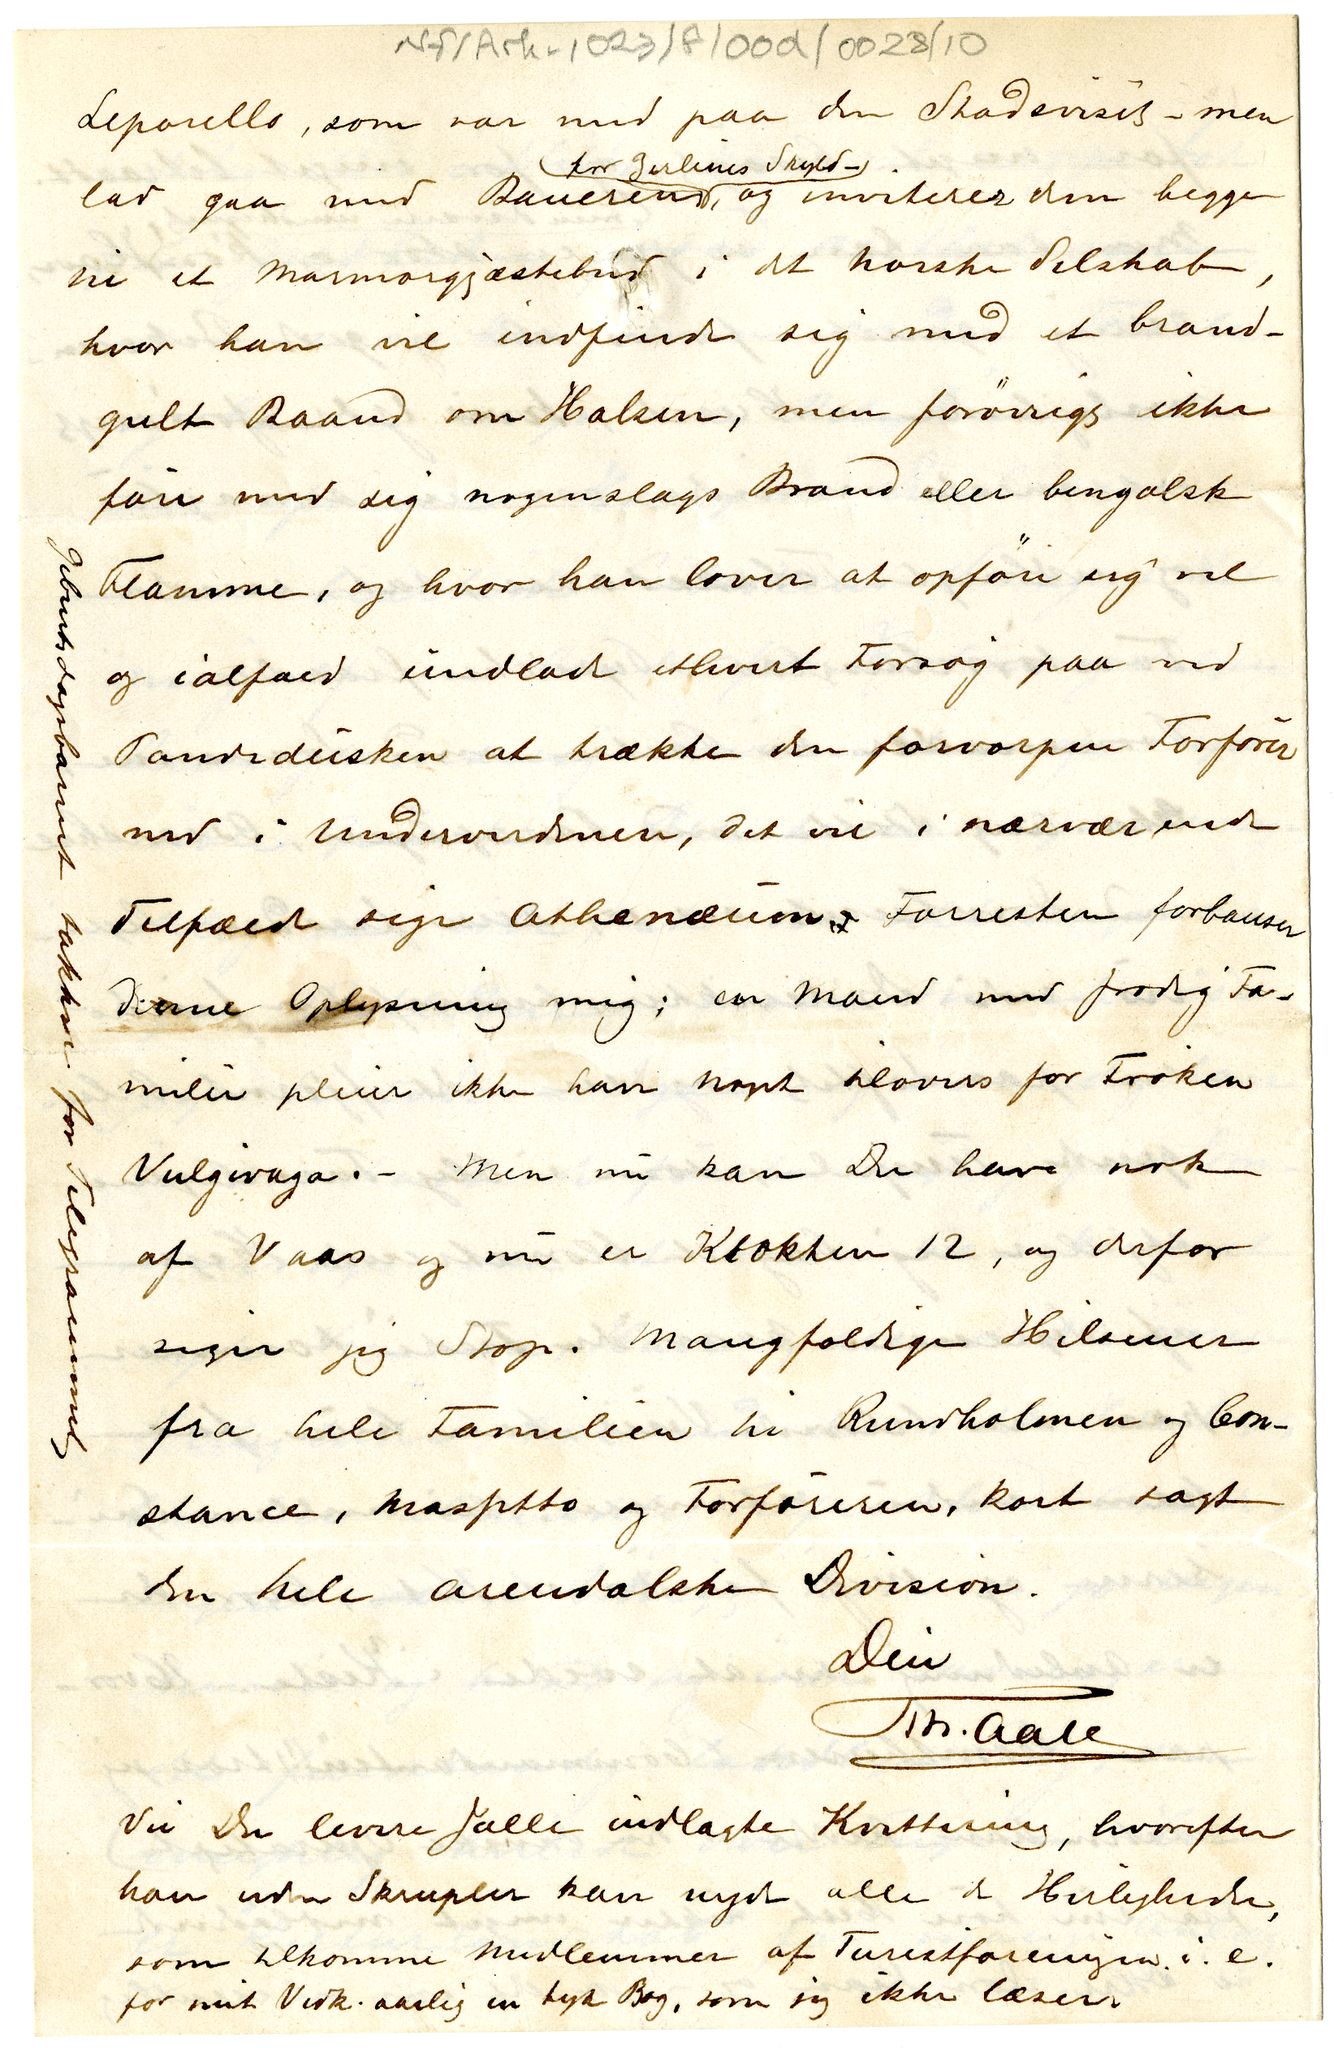 NF/Ark-1023/F/00d/0028/10
Leporello, som var med paa den Stadsvisit – men
for Zerlines Skyld –
lad gaa med Baueren, og inviterer dem begge
til et Marmorgjæstebud i det norske Selskab,
hvor han vil indfinde sig med et brand-
gult Baand om Halsen, men forövrigt ikke
före med sig nogenslags Brand eller bengalsk
Flamme, og hvor han lover at opföre sig vel
og ialfald undlade ethvert Forsøg paa ved
Pandedusken at trække den forvorpne Forförer
ned i Underverdenen, det vil i nærværende
Tilfælde sige Athenæum. Forresten forbauser
denne Oplysning mig; en Mand med frodig Fa-
milie pleier ikke have noget tilovers for Frøken
Vulgivaga. – Men nu kan Du have nok
af Vaas og nu er Klokken 12, og derfor
siger jeg Stop. Mangfoldige Hilsener
fra hele Familien til Rundholmen og Con-
stance, og Forföreren, kort sagt
den hele arendalske Division.
Din
Th. Aall
Vil Du levere Jalle indlagte Kvittering, hvorefter
han uden Skrupler kan nyde alle de Herligheder,
som tilkomme Medlemmer af Turistforeningen. i. e.
for mit Vedk. aarlig en tyk Bog, som jeg ikke læser.
Geburtsdagsbarnet takker for Telegrammet